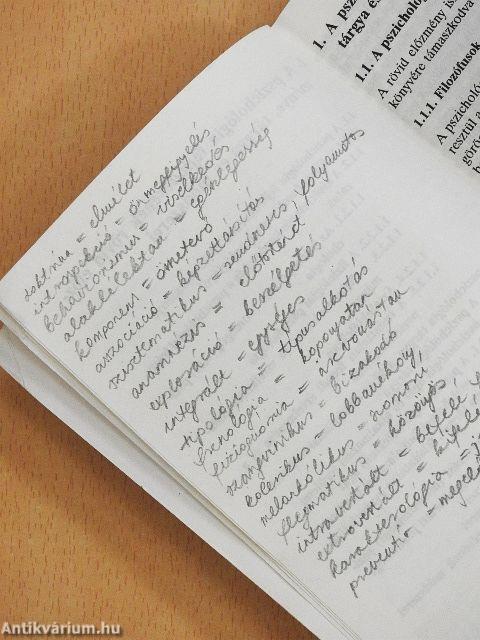 doktrína = elmélet
introspekció = önmegfigyelés
behaviorizmus = viselkedés
alaklélektan = egészlegesség
komponens = összetevő
asszociáció = képzettársítás
szisztematikus = rendszeres, folyamatos
anamnézis = előtörténet
exploráció = beszélgetés
integrált = egységes
tipológia = típusalkotás
frenológia = koponyatan
fiziognómia = arcvonástan
szangvinikus = bizakodó
kolerikus = lobbanékony
melankólikus = szomorú
flegmatikus = közönyös
introvertált = befelé
extrovertált = kifelé
karakterológia =
prevenció = megelő
1. A psz
tárgya é
1.1. A pszichol
A rövid előzmény is
könyvére támaszkodva
1.1.1. Filozófusok
A pszicholó
resztül a
görö
Antikvárium.hu